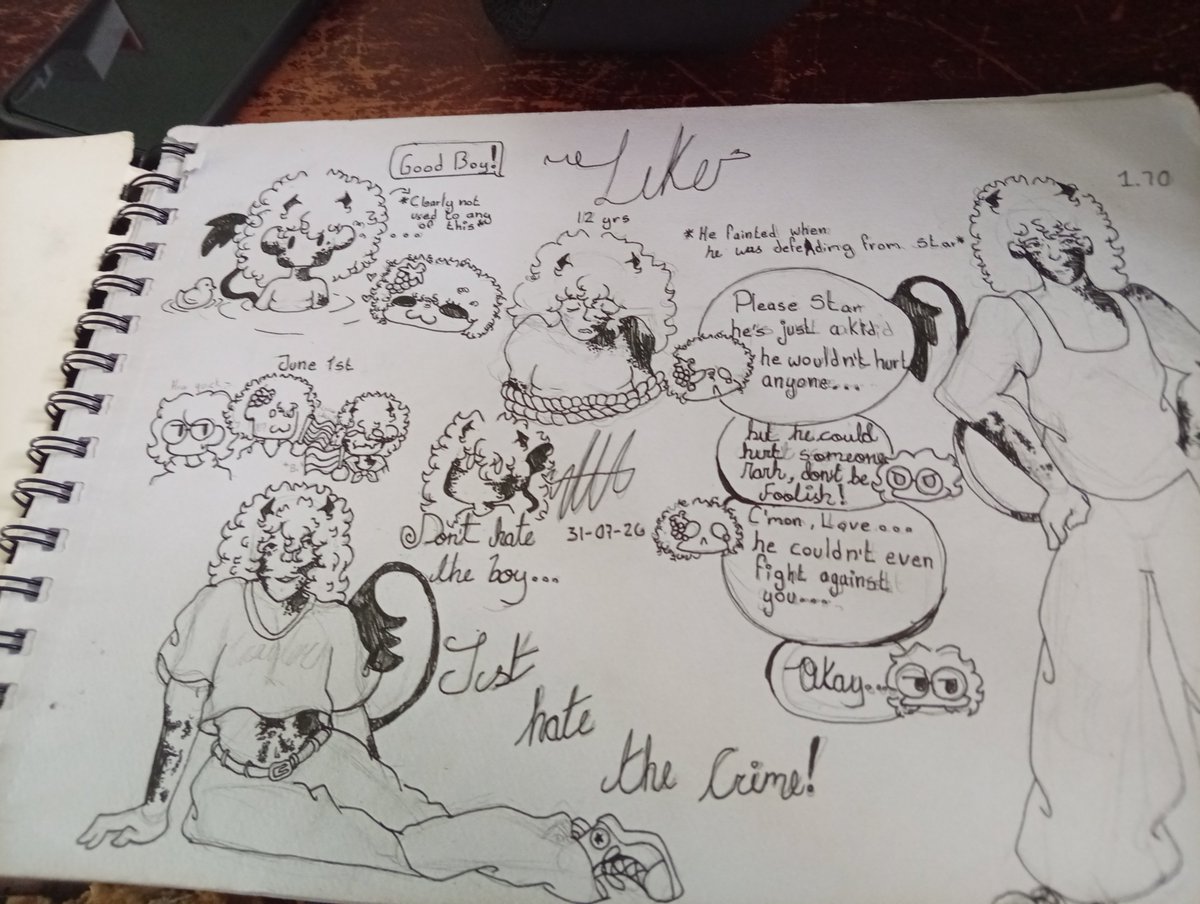 Good Boy!
~Like~
1.70
*Clearly not
used to any
of this*
...
12 yrs
*He fainted when
he was defending from Star*
Please Star
he's just a kid
he wouldn't hurt
anyone...
June 1st
but he could
hurt someone
don't be
foolish!
Don't hate
the boy...
31-07-26
C'mon, Love....
he couldn't even
fight against
you....
Okay...
Just
hate
the Crime!